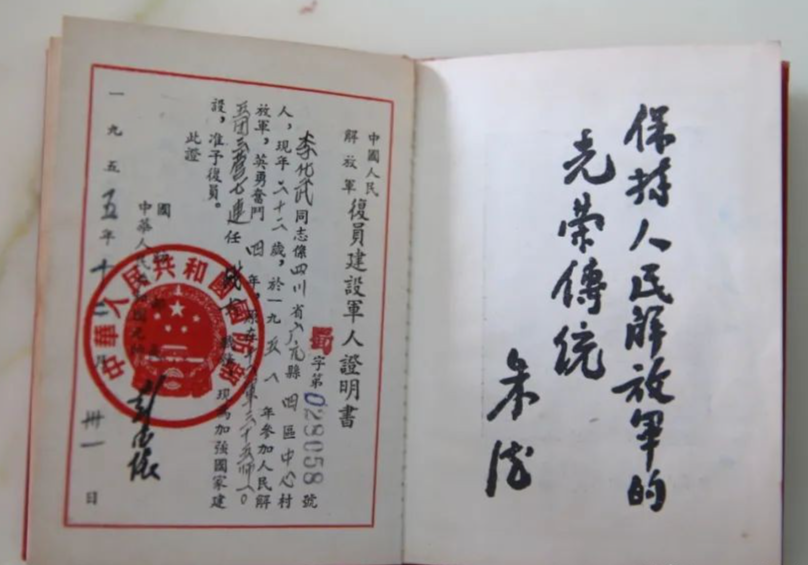 保持人民解放軍的
光荣傳统
朱德
中國人民
解放軍
復員建設軍人證明書
蜀字第028058號
李化武同志係四川省广元縣四區中心村
人，現年二十二歲，於一九五八年參加人民解
放軍，英勇奮鬥四年，原在
五团三营七連任
現為加強國家建
設，准予復員。
此證
國
中華人民
彭德懷
一九五五年十二月卅一日
中華人民共和國國防部